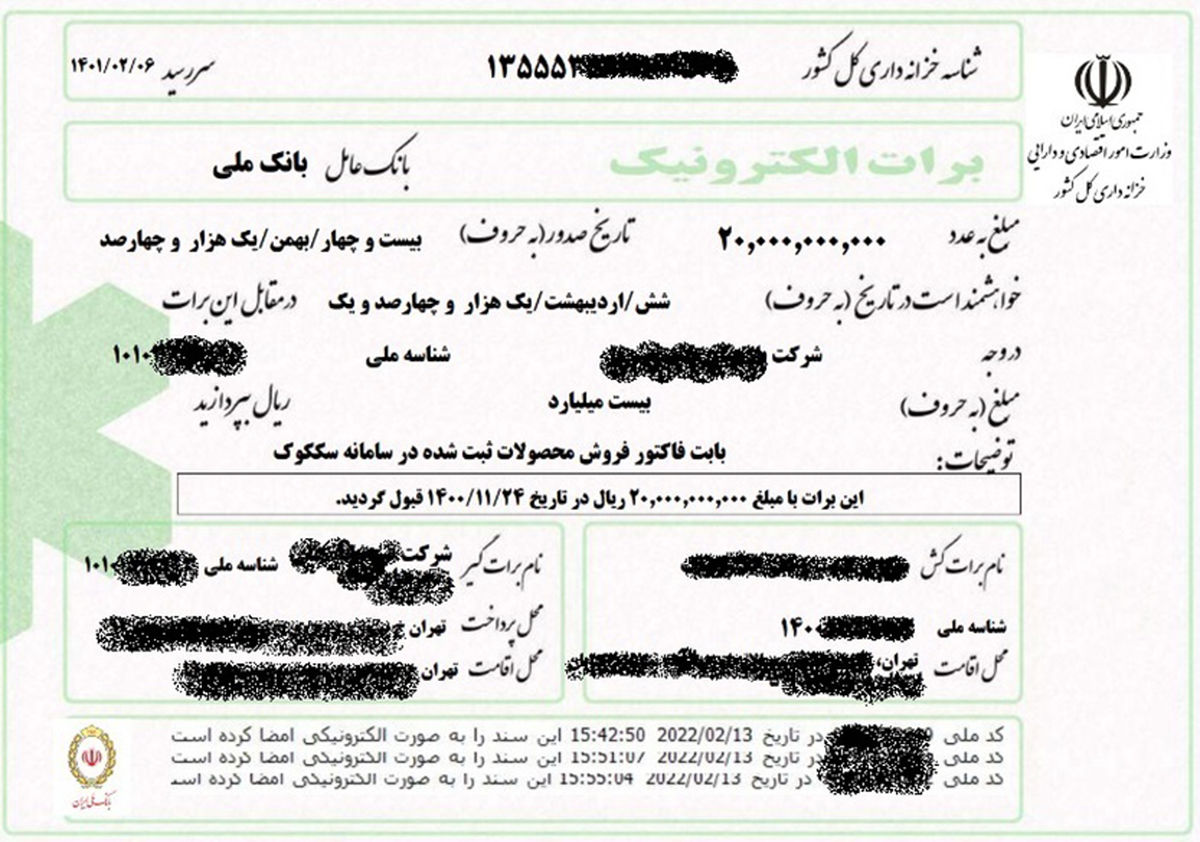 شناسه خزانه داری کل کشور ۱۳۵۵۵۲ سررسید ۱۴۰۱/۰۲/۰۶
جمهوری اسلامی ایران
وزارت امور اقتصادی و دارایی
خزانه داری کل کشور
برات الکترونیک بانک عامل بانک ملی
مبلغ به عدد ۲۰,۰۰۰,۰۰۰,۰۰۰ تاریخ صدور(به حروف) بیست و چهار/بهمن/یک هزار و چهارصد
خواهشمند است در تاریخ (به حروف) شش/اردیبهشت/یک هزار و چهارصد و یک در مقابل این برات
در وجه شرکت شناسه ملی ۱۰۱۰
مبلغ (به حروف) بیست میلیارد ریال بپردازید
توضیحات: بابت فاکتور فروش محصولات ثبت شده در سامانه سککوک
این برات با مبلغ ۲۰,۰۰۰,۰۰۰,۰۰۰ ریال در تاریخ ۱۴۰۰/۱۱/۲۴ قبول گردید.
نام برات کش
شناسه ملی ۱۴۰
محل اقامت تهران،
نام برات گیر شرکت شناسه ملی ۱۰۱۰
محل پرداخت تهران
محل اقامت تهران
کد ملی در تاریخ 2022/02/13 15:42:50 این سند را به صورت الکترونیکی امضا کرده است
کد ملی در تاریخ 2022/02/13 15:51:07 این سند را به صورت الکترونیکی امضا کرده است
کد ملی در تاریخ 2022/02/13 15:55:04 این سند را به صورت الکترونیکی امضا کرده است
بانک ملی ایران